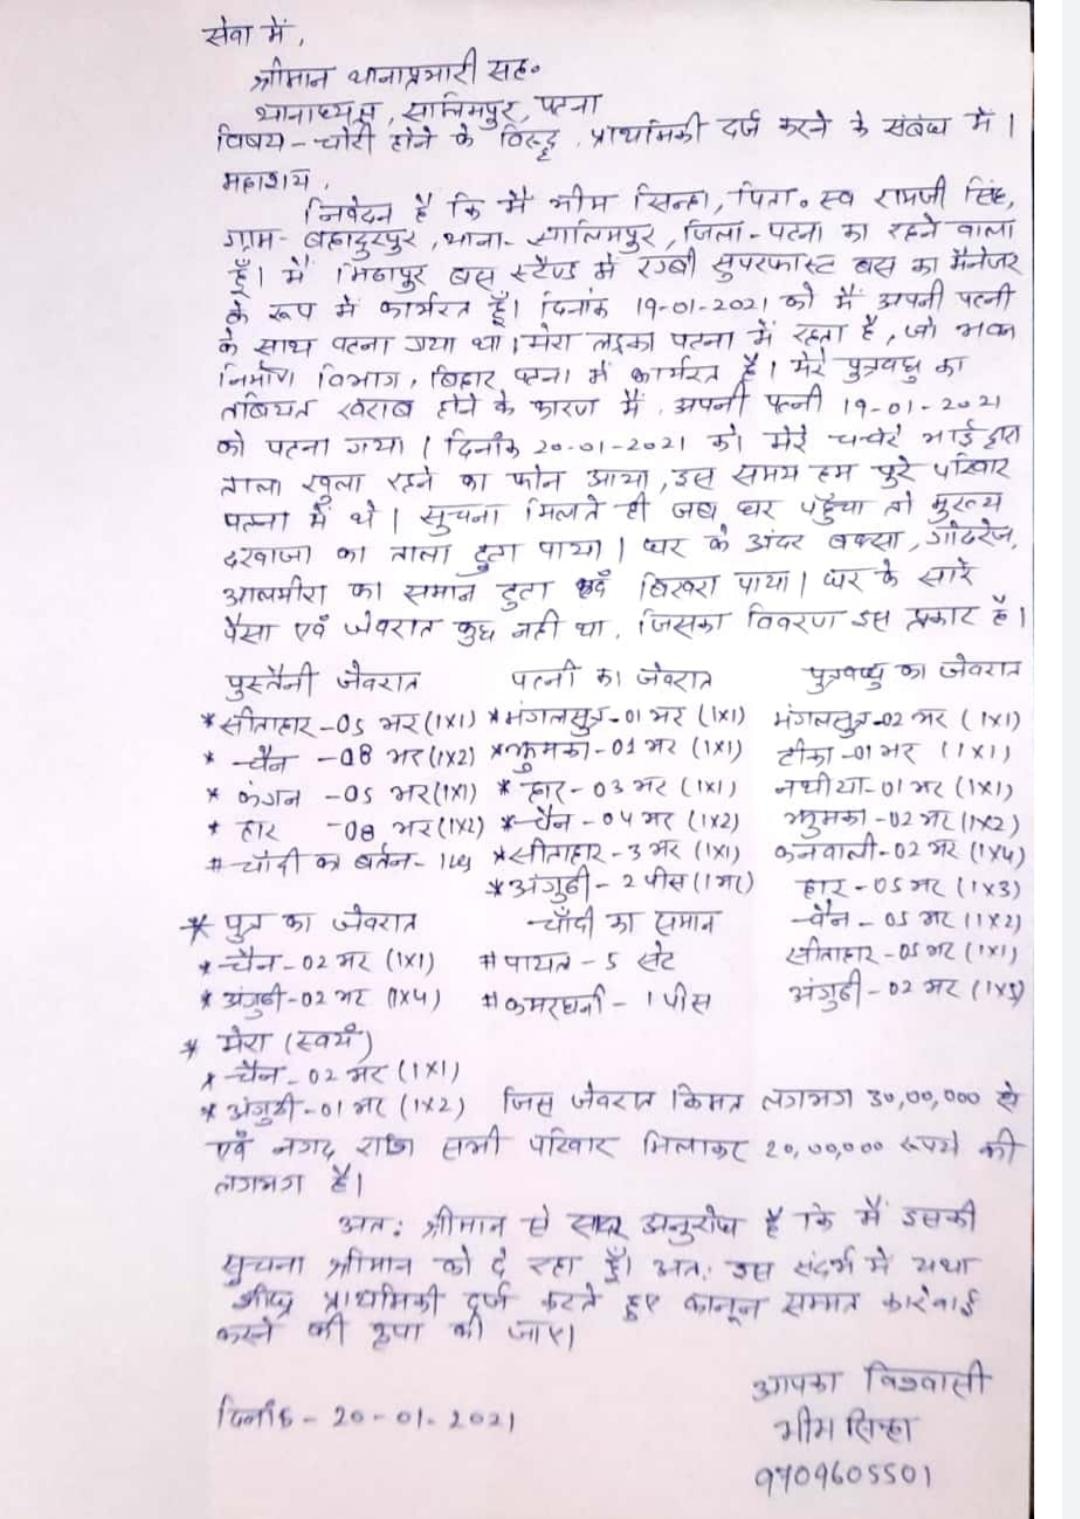 सेवा में,
श्रीमान थानाप्रभारी सह०
थानाध्यक्ष, सालिमपुर, पटना
विषय - चोरी होने के विरुद्ध, प्राथमिकी दर्ज करने के संबंध में।
महाशय,
निवेदन है कि मैं भीम सिन्हा, पिता० स्व रामजी सिंह,
ग्राम - बहादुरपुर, थाना - सालिमपुर, जिला - पटना का रहने वाला
हूँ। मैं मिठापुर बस स्टैण्ड में रग्बी सुपरफास्ट बस का मैनेजर
के रूप में कार्यरत हूँ। दिनांक 19-01-2021 को मैं अपनी पत्नी
के साथ पटना गया था। मेरा लड़का पटना में रहता है, जो भवन
निर्माण विभाग, बिहार, पटना में कार्यरत है। मेरे पुत्रवधु का
तबियत खराब होने के कारण मैं, अपनी पत्नी 19-01-2021
को पटना गया। दिनांक 20-01-2021 को मेरे चचेरे भाई द्वारा
ताला खुला रहने का फोन आया, उस समय हम पुरे परिवार
पटना में थे। सुचना मिलते ही जब घर पहुँचा तो मुख्य
दरवाजा का ताला टुटा पाया। घर के अंदर बक्सा, गोदरेज,
आलमीरा का समान टुटा एवं बिखरा पाया। घर के सारे
पैसा एवं जेवरात कुछ नही था, जिसका विवरण इस प्रकार है।
पुस्तैनी जेवरात पत्नी का जेवरात पुत्रवधु का जेवरात
* सीताहार - 05 भर (1x1) * मंगलसुत्र - 01 भर (1x1) मंगलसुत्र - 02 भर (1x1)
* चैन - 08 भर (1x2) * झुमका - 01 भर (1x1) टीका - 01 भर (1x1)
* कंगन - 05 भर (1x1) * हार - 03 भर (1x1) नथीया - 01 भर (1x1)
* हार - 08 भर (1x2) * चैन - 04 भर (1x2) झुमका - 02 भर (1x2)
# चाँदी का बर्तन - 1 kg * सीताहार - 3 भर (1x1) कनवाली - 02 भर (1x4)
* अंगुठी - 2 पीस (1 भर) हार - 05 भर (1x3)
* पुत्र का जेवरात चाँदी का समान चैन - 05 भर (1x2)
* चैन - 02 भर (1x1) # पायल - 5 सेट सीताहार - 05 भर (1x1)
* अंगुठी - 02 भर (1x4) # कमरधनी - 1 पीस अंगुठी - 02 भर (1x5)
* मेरा (स्वयं)
* चैन - 02 भर (1x1)
* अंगुठी - 01 भर (1x2) जिस जेवरात किमत लगभग 30,00,000 से
एवं नगद राशि सभी परिवार मिलाकर 20,00,000 रूपये की
लगभग है।
अत: श्रीमान से सादर अनुरोध है कि मैं इसकी
सुचना श्रीमान को दे रहा हूँ। अत: इस संदर्भ में यथा
शीघ्र प्राथमिकी दर्ज करते हुए कानून सम्मत कारवाई
करने की कृपा की जाए।
आपका विश्वासी
दिनांक - 20-01-2021
भीम सिन्हा
9709605501